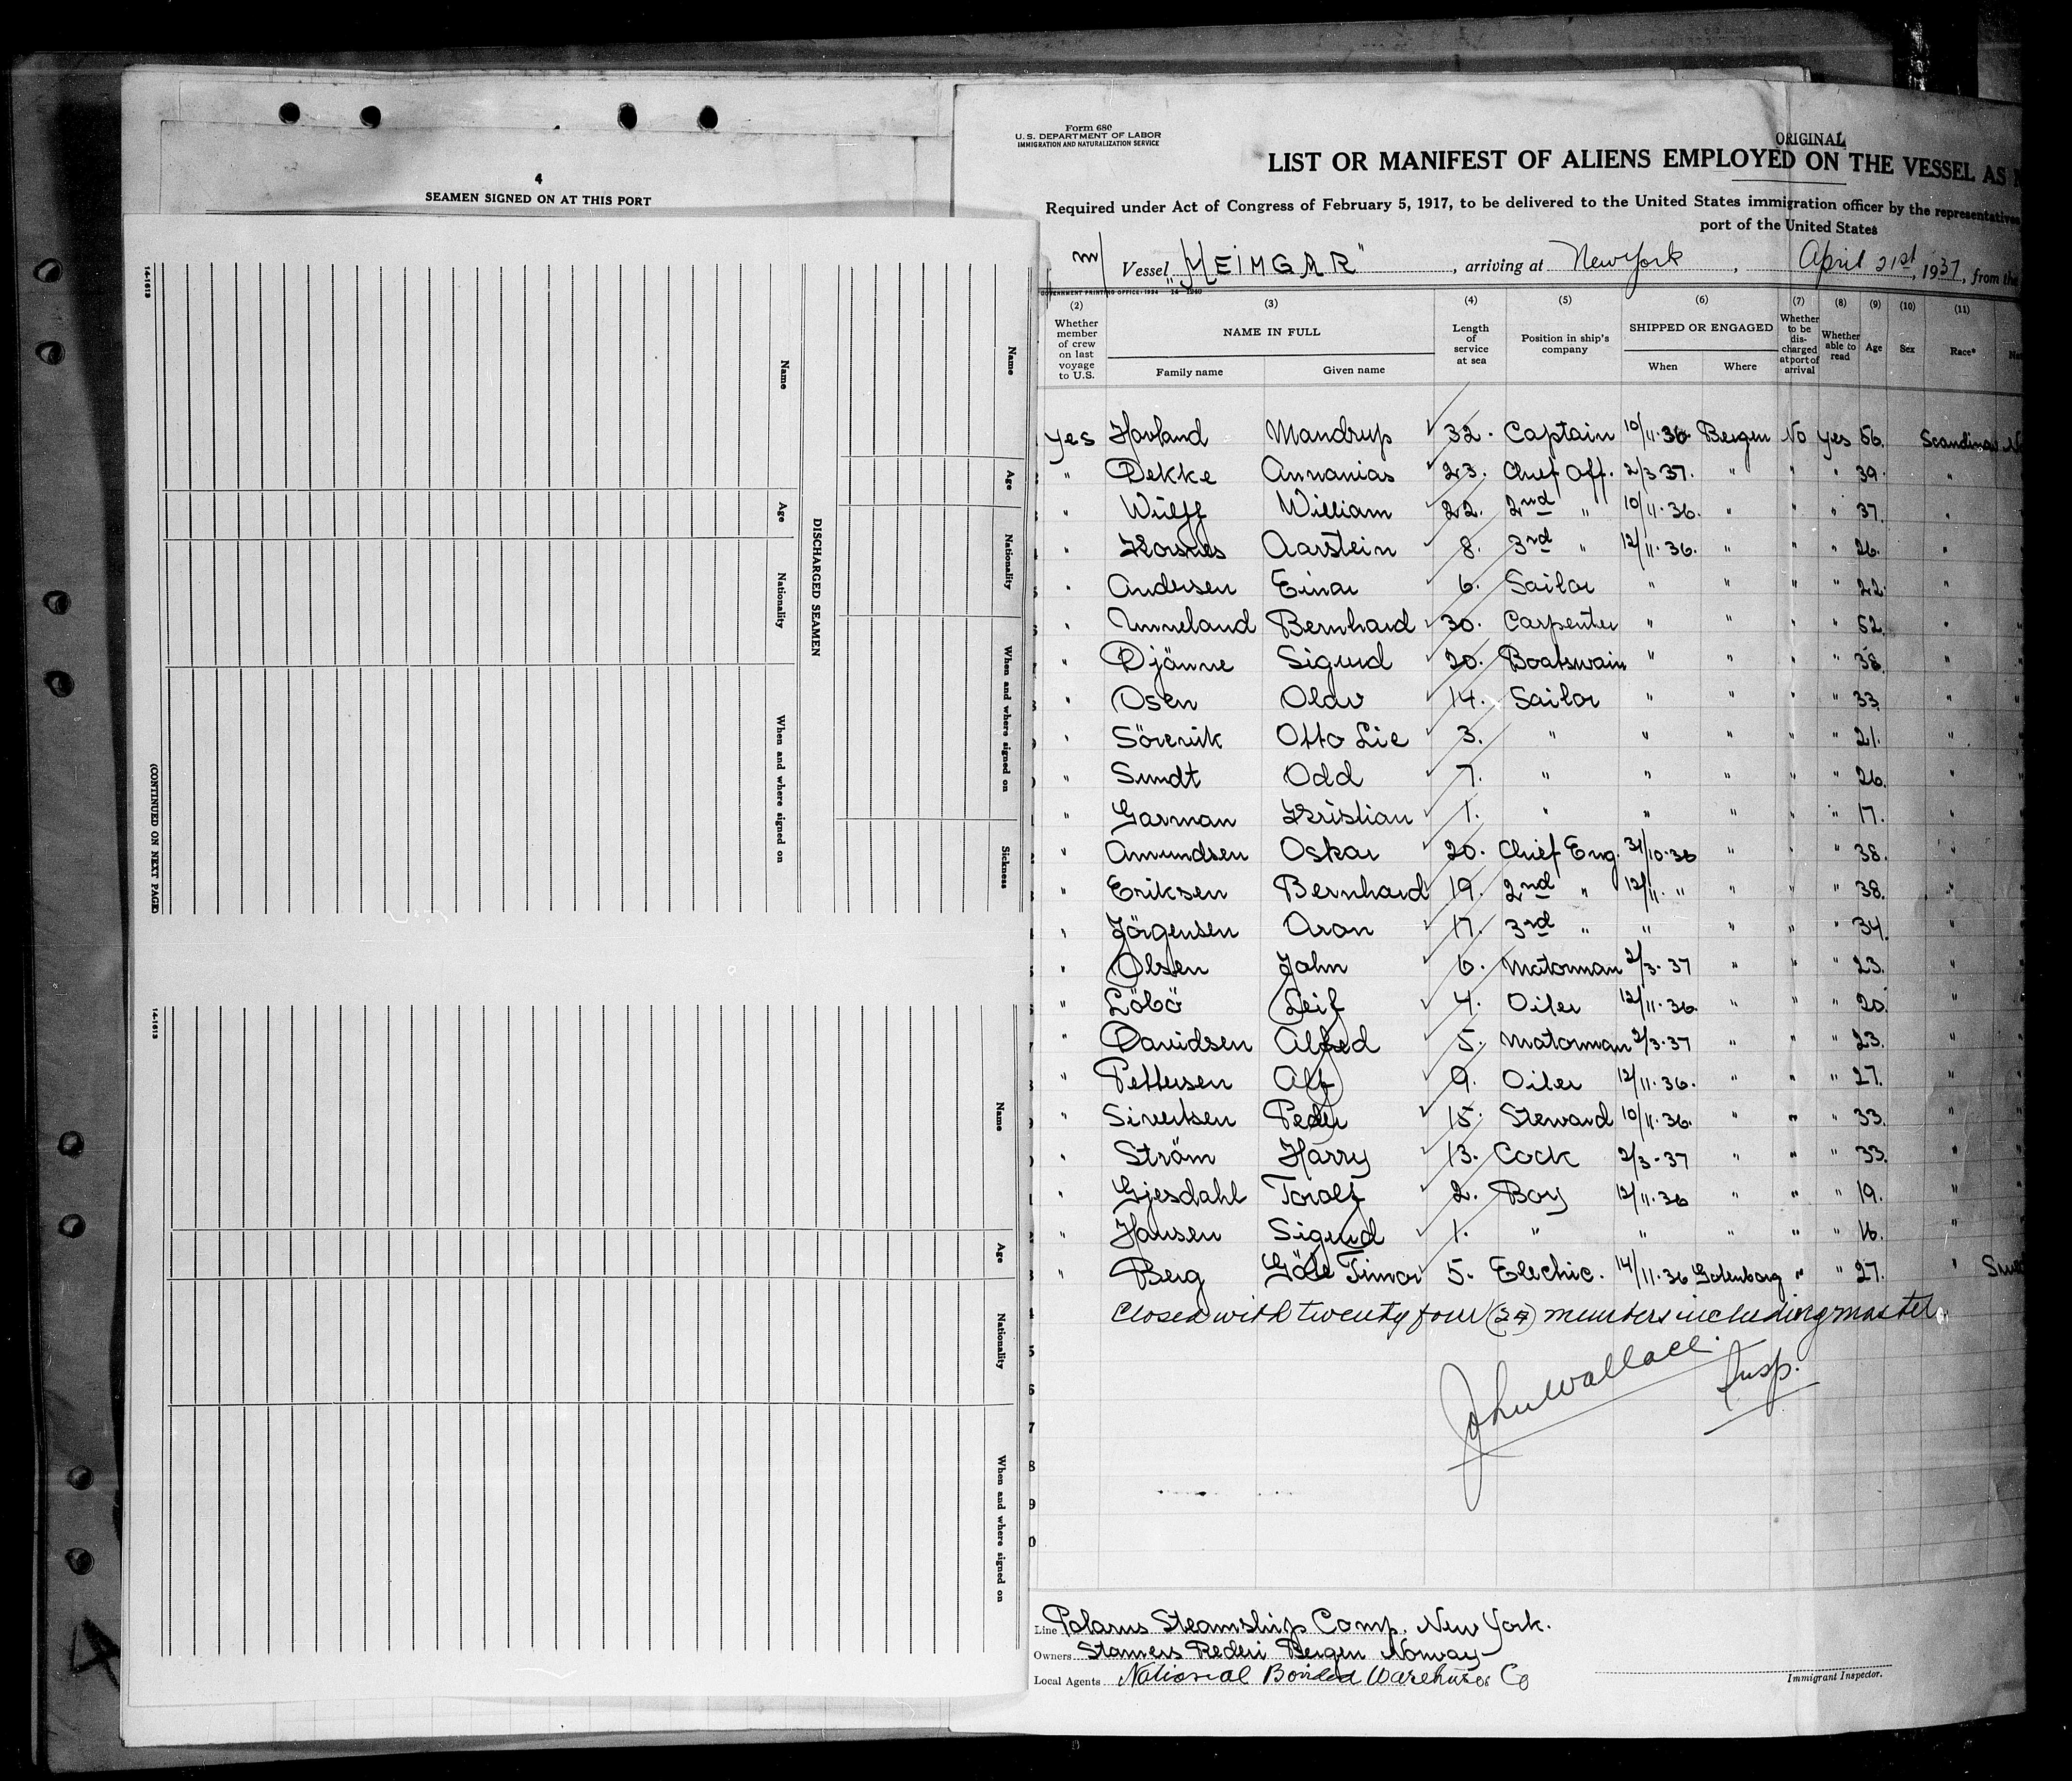 4
SEAMEN SIGNED ON AT THIS PORT
14-1613
Name
Age
Nationality
When and where signed on
Sickness
DISCHARGED SEAMEN
Name
Age
Nationality
When and where signed on
(CONTINUED ON NEXT PAGE)
14-1613
Name
Age
Nationality
When and where signed on
Form 680
U. S. DEPARTMENT OF LABOR
IMMIGRATION AND NATURALIZATION SERVICE
ORIGINAL
LIST OR MANIFEST OF ALIENS EMPLOYED ON THE VESSEL AS
Required under Act of Congress of February 5, 1917, to be delivered to the United States immigration officer by the representatives
port of the United States
m/ Vessel "HEIMGAR", arriving at New York, April 21st, 1937, from the
(2) (3) (4) (5) (6) (7) (8) (9) (10) (11)
Whether member of crew on last voyage to U.S. NAME IN FULL Length of service at sea Position in ship's company SHIPPED OR ENGAGED Whether to be discharged at port of arrival Whether able to read Age Sex Race*
Family name Given name When Where
yes Hovland Mandrup 32. Captain 10/11.36. Bergen No yes 56. Scandinav
" Dekke Annanias 23. Chief Off. 2/3 37. " " " 39. "
" Wülff William 22. 2nd " 10/11.36. " " " 37. "
" Korsnes Aarstein 8. 3rd " 12/11.36. " " " 26. "
" Andersen Einar 6. Sailor " " " " 22. "
" Unneland Bernhard 30. Carpenter " " " " 52. "
" Djönne Sigurd 20. Boatswain " " " " 38. "
" Osen Olav 14. Sailor " " " " 33. "
" Sörevik Otto Lie 3. " " " " " 21. "
" Sundt Odd 7. " " " " " 26. "
" Garman Kristian 1. " " " " " 17. "
" Amundsen Oskar 20. Chief Eng. 31/10.36 " " " 38. "
" Eriksen Bernhard 19. 2nd " 12/11. " " " " 38. "
" Jörgensen Aron 17. 3rd " " " " " 34. "
" Olsen John 6. Motorman 2/3.37 " " " 23. "
" Löbö Leif 4. Oiler 12/11.36. " " " 20. "
" Davidsen Alfred 5. Motorman 2/3.37 " " " 23. "
" Pettersen Alf 9. Oiler 12/11.36. " " " 27. "
" Sivertsen Peder 15. Steward 10/11.36. " " " 33. "
" Ström Harry 13. Cock 2/3-37 " " " 33. "
" Gjesdahl Toralf 2. Boy 12/11.36 " " " 19. "
" Hansen Sigurd 1. " " " " " 16. "
" Berg Göte Timor 5. Electric. 14/11.36 Gotenborg " " 27. "
Closed with twenty four (24) members including master.
John Wallace
Insp.
Line Polarus Steamship Comp. New York.
Owners Stamers Rederi Bergen Norway
Local Agents National Bonded Warehuses Co
Immigrant Inspector.